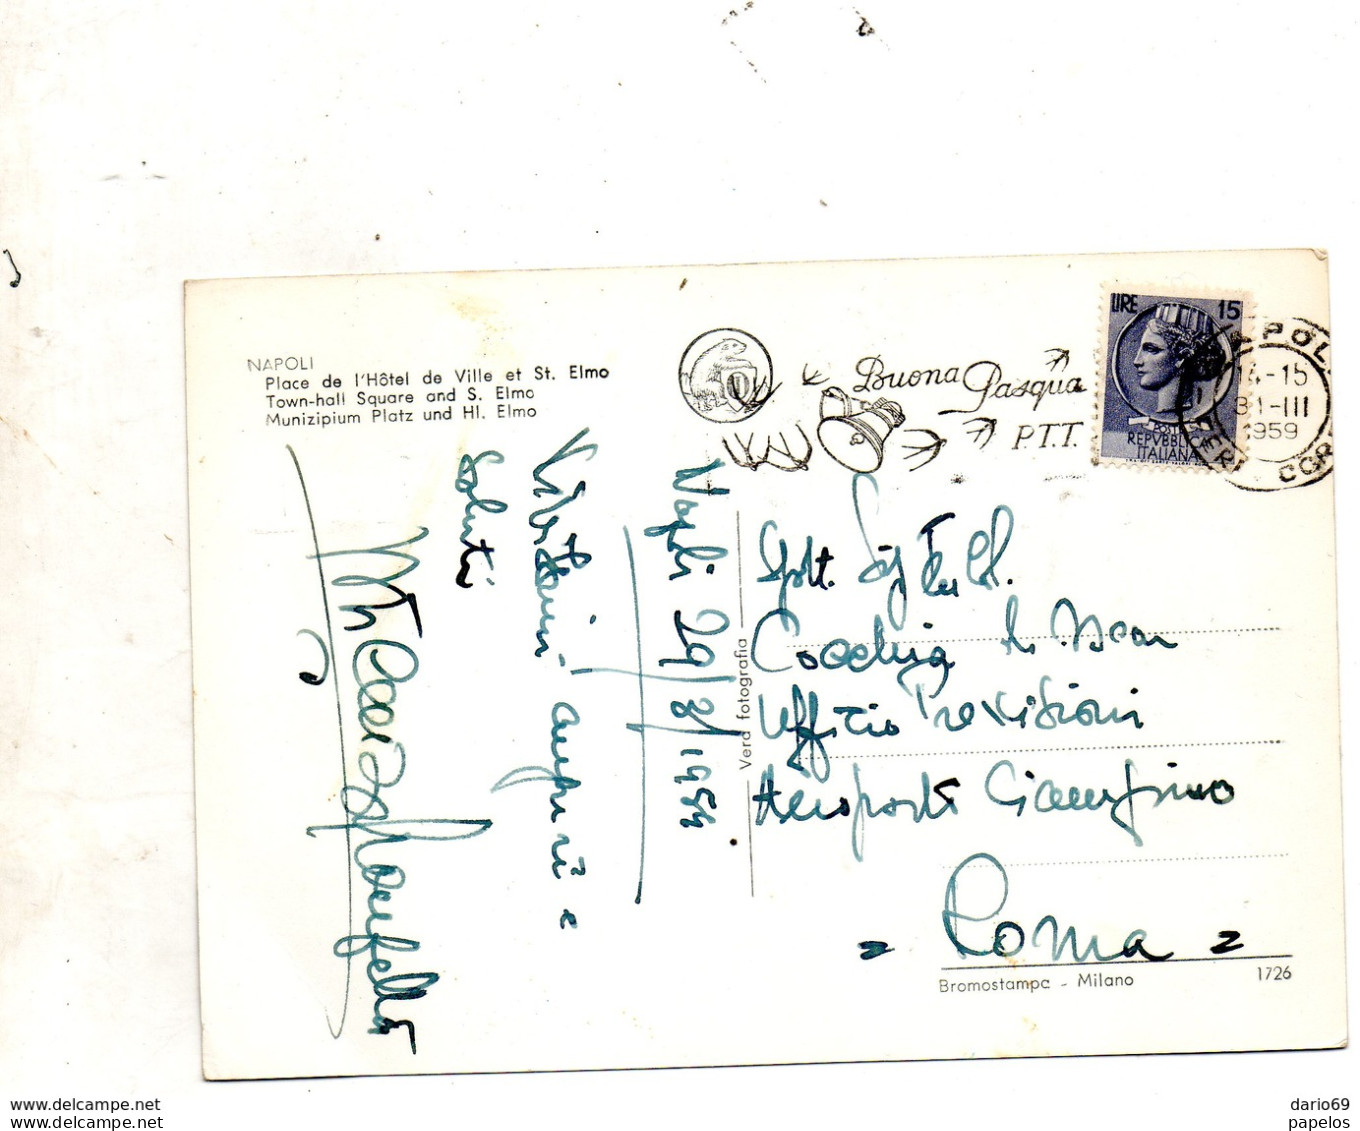 NAPOLI
Place de l'Hôtel de Ville et St. Elmo
Town-hall Square and S. Elmo
Munizipium Platz und Hl. Elmo
Buona Pasqua
P.T.T.
LIRE 15
POSTE
REPVBBLICA
ITALIANA
14-15
31-III
1959
FERR. CORR
Napoli 29/3/1959
Vivissimi auguri e
saluti
Vera fotografia
Spett. Sig.
Cocchia
Ufficio Previsioni
Aeroporto Ciampino
= Roma =
Bromostampa - Milano
1726
delcampe.net
delcampe.net
dario69
papelos